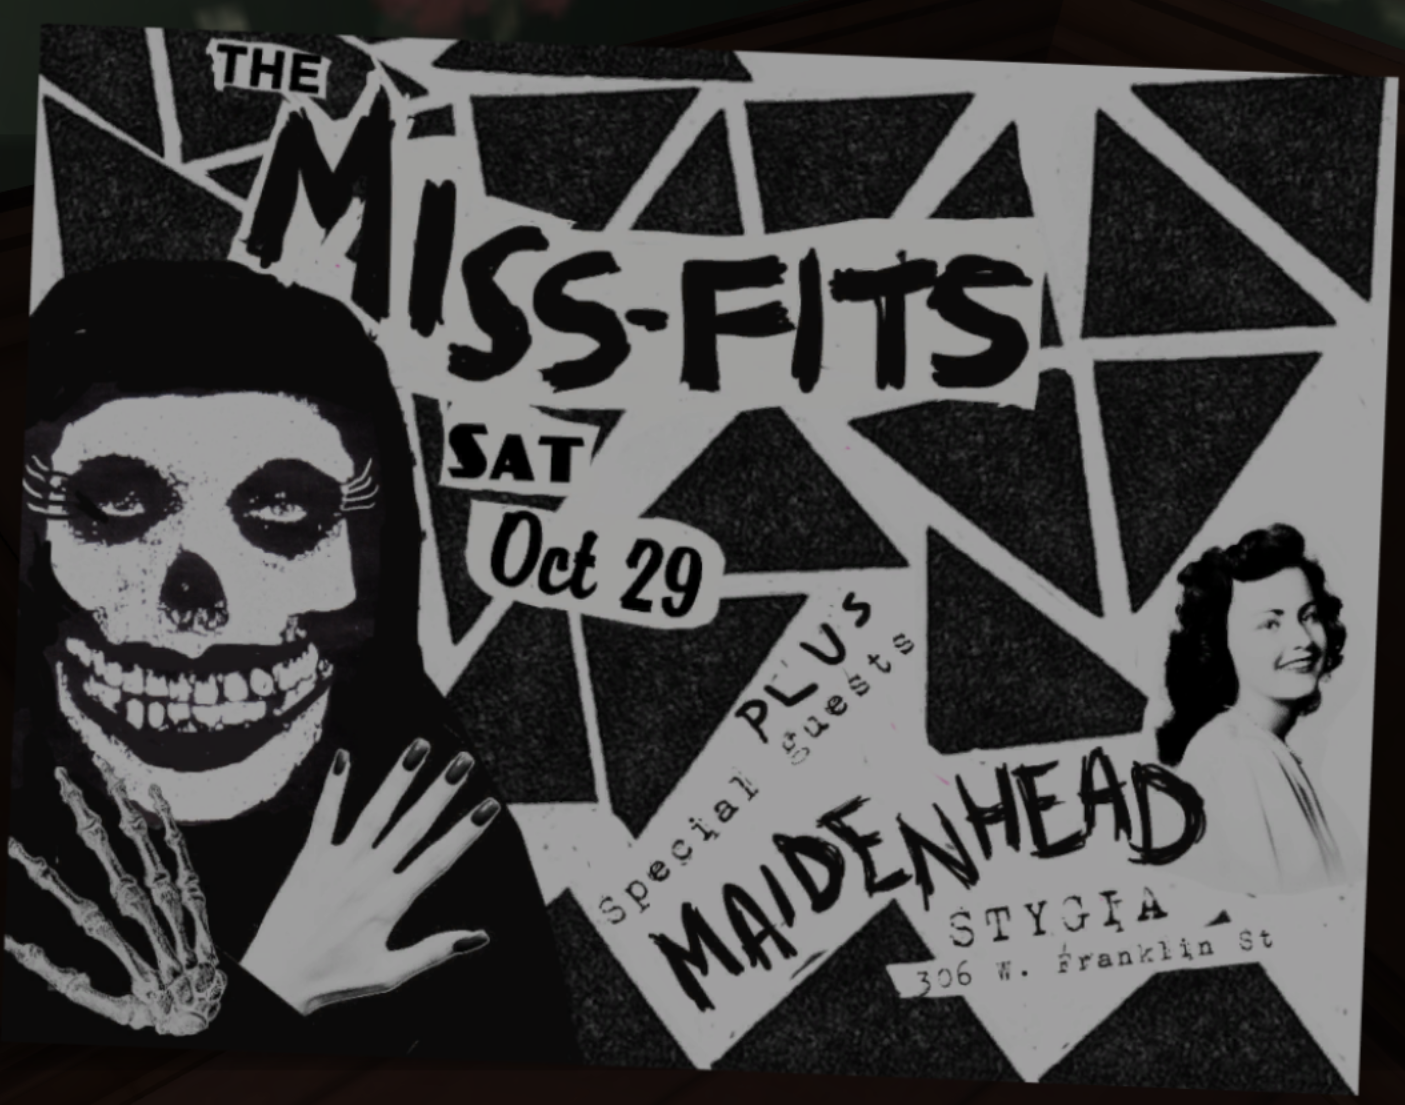 THE
MISS-FITS
SAT
Oct 29
PLUS
Special guests
MAIDENHEAD
STYGIA
306 W. Franklin St